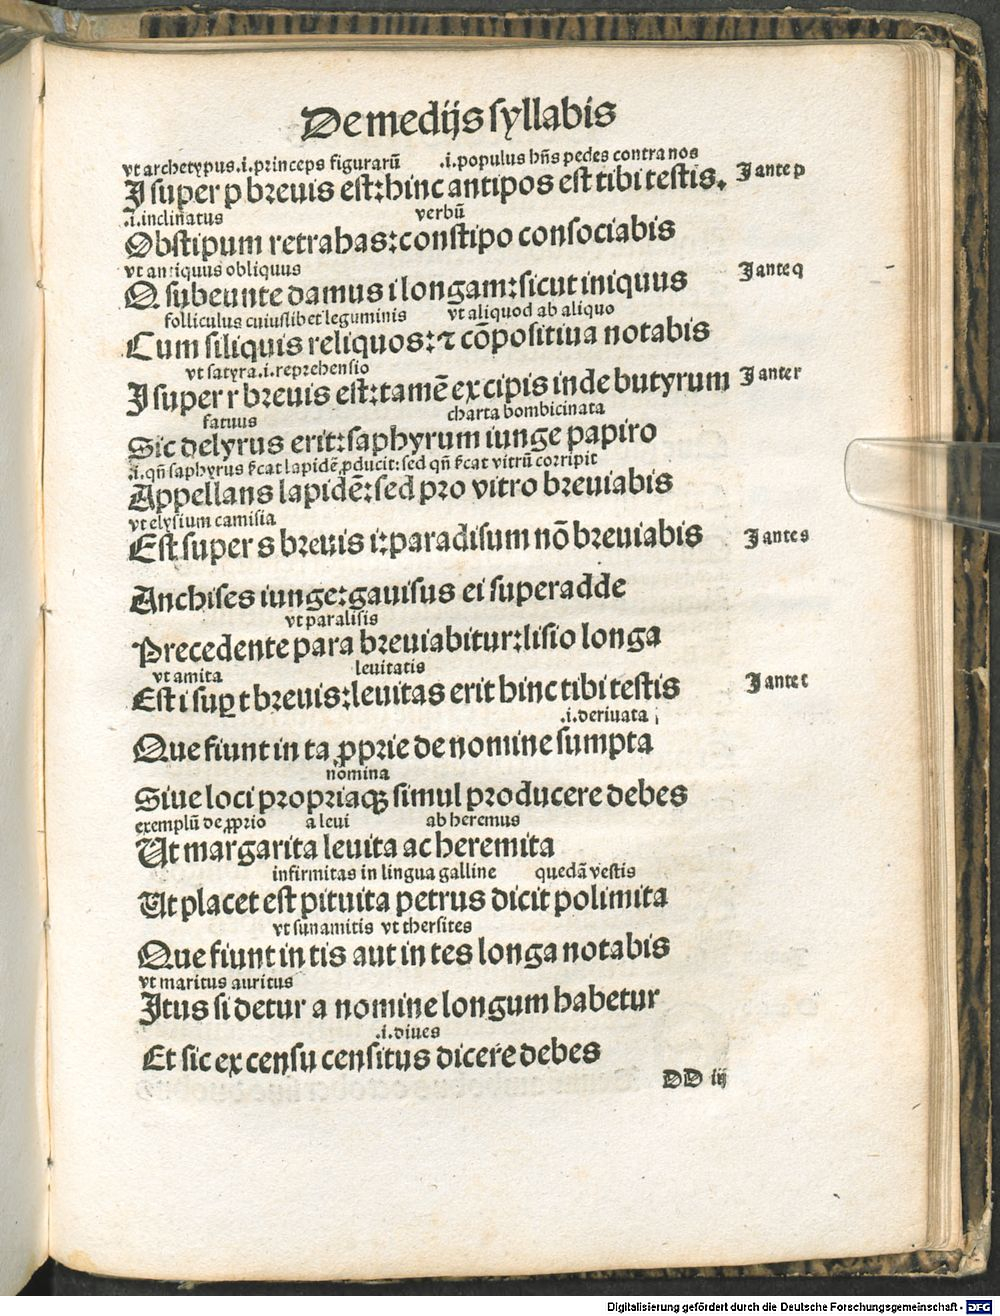 De medijs syllabis
vt archetypus .i. princeps figurarū .i. populus hñs pedes contra nos
I super p breuis est: hinc antipos est tibi testis. I ante p
.i. inclinatus verbū
Obstipum retrahas: constipo consociabis
vt antiquus obliquus
Q subeunte damus i longam: sicut iniquus I ante q
folliculus cuiuslibet leguminis vt aliquod ab aliquo
Cum siliquis reliquos: ⁊ cōpositiua notabis
vt satyra .i. reprehensio
I super r breuis est: tamē excipis inde butyrum I ante r
fatuus charta bombicinata
Sic delyrus erit: saphyrum iunge papiro
.i. qñ saphyrus ſcat lapidē ꝓducit: sed qñ ſcat vitrū corripit
Appellans lapidē: sed pro vitro breuiabis
vt elysium camisia
Est super s breuis i: paradisum nō breuiabis I ante s
Anchises iunge: gauisus ei superadde
vt paralisis
Precedente para breuiabitur: lisio longa
vt amita leuitatis
Est i suꝑ t breuis: leuitas erit hinc tibi testis I ante t
.i. deriuata
Que fiunt in ta ꝓprie de nomine sumpta
nomina
Siue loci propriaqꝫ simul producere debes
exemplū de ꝓprio a leui ab heremus
Ut margarita leuita ac heremita
infirmitas in lingua galline quedā vestis
Ut placet est pituita petrus dicit polimita
vt sunamitis vt thersites
Que fiunt in tis aut in tes longa notabis
vt maritus auritus
Itus si detur a nomine longum habetur
.i. diues
Et sic ex censu censitus dicere debes
DD iij
Digitalisierung gefördert durch die Deutsche Forschungsgemeinschaft - DFG